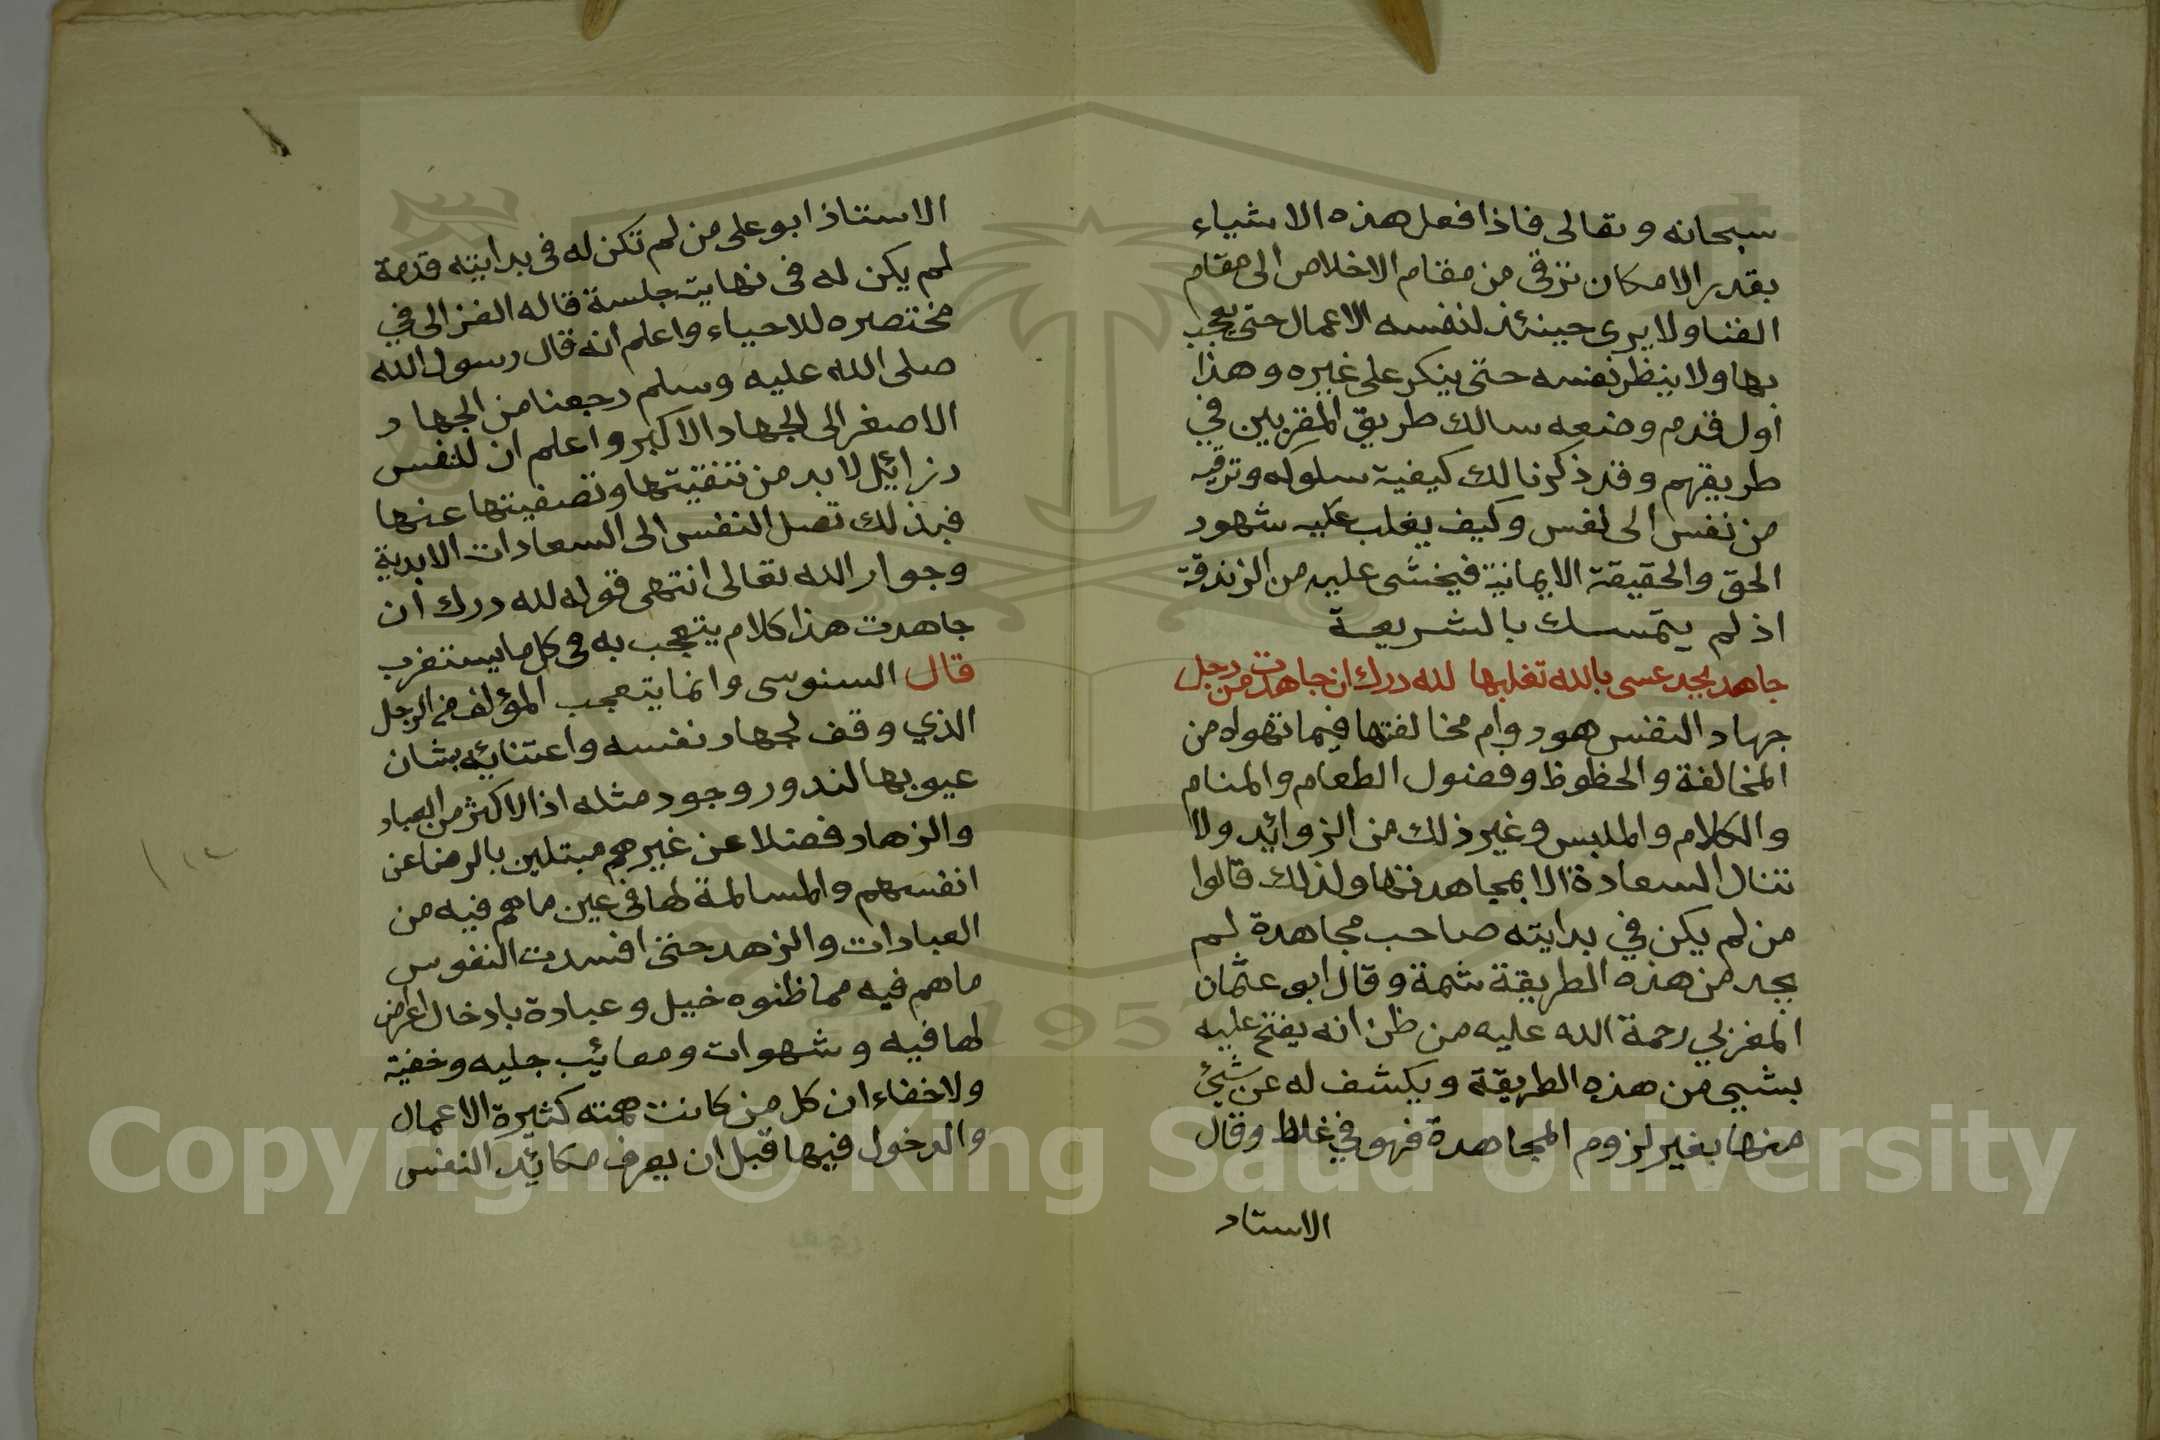 سبحانه وتعالى فاذا فعل هذه الاشياء
بقدر الامكان ترقى من مقام الاخلاص الى مقام
الفنا ولا يرى حينئذ لنفسه الاعمال حتى يعجب
بها ولا ينظر نفسه حتى ينكر على غيره وهذا
اول قدم وضعه سالك طريق المقربين في
طريقهم وقد ذكرنا لك كيفية سلوكه وترقيه
من نفس الى نفس وكيف يغلب عليه شهود
الحق والحقيقة الايمانية فيخشى عليه من الزندقة
اذ لم يتمسك بالشريعة
جاهد بجد عسى بالله تغلبها لله درك ان جاهدت من رجل
جهاد النفس هو دوام مخالفتها فيما تهواه من
المخالفة والحظوظ وفضول الطعام والمنام
والكلام والملبس وغير ذلك من الزوائد ولا
تنال السعادة الا بمجاهدتها ولذلك قالوا
من لم يكن في بدايته صاحب مجاهدة لم
يجد من هذه الطريقة شمة وقال ابو عثمان
المغربي رحمة الله عليه من ظن انه يفتح عليه
بشيى من هذه الطريقة ويكشف له عن شيئ
منها بغير لزوم المجاهدة فهو في غلط وقال
الاستاد
الاستاذ ابو على من لم تكن له في بدايته قدمة
لم يكن له في نهايته جلسة قاله الغزالى في
مختصره للاحياء واعلم انه قال رسول الله
صلى الله عليه وسلم رجعنا من الجهاد
الاصغر الى الجهاد الاكبر واعلم ان للنفس
رزائيل لا بد من تنقيتها وتصفيتها عنها
فبذلك تصل النفس الى السعادات الابدية
وجوار الله تعالى انتهى قوله لله درك ان
جاهدت هذا كلام يتعجب به في كل ما يستغرب
قال السنوسى وانما يتعجب المؤلف من الرجل
الذي وقف لجهاد نفسه واعتنائيه بشان
عيوبها لندور وجود مثله اذ الاكثر من العباد
والزهاد فضلا عن غيرهم مبتلين بالرضا عن
انفسهم والمسالمة لها في عين ما هم فيه من
العبادات والزهد حتى افسدت النفوس
ما هم فيه مما ظنوه خيل وعبادة بادخال اعراض
لها فيه وشهوات ومعائيب جليه وخفية
ولا خفاء ان كل من كانت همته كثيرة الاعمال
والدخول فيها قبل ان يعرف مكائيد النفس
Copyright © King Saud University